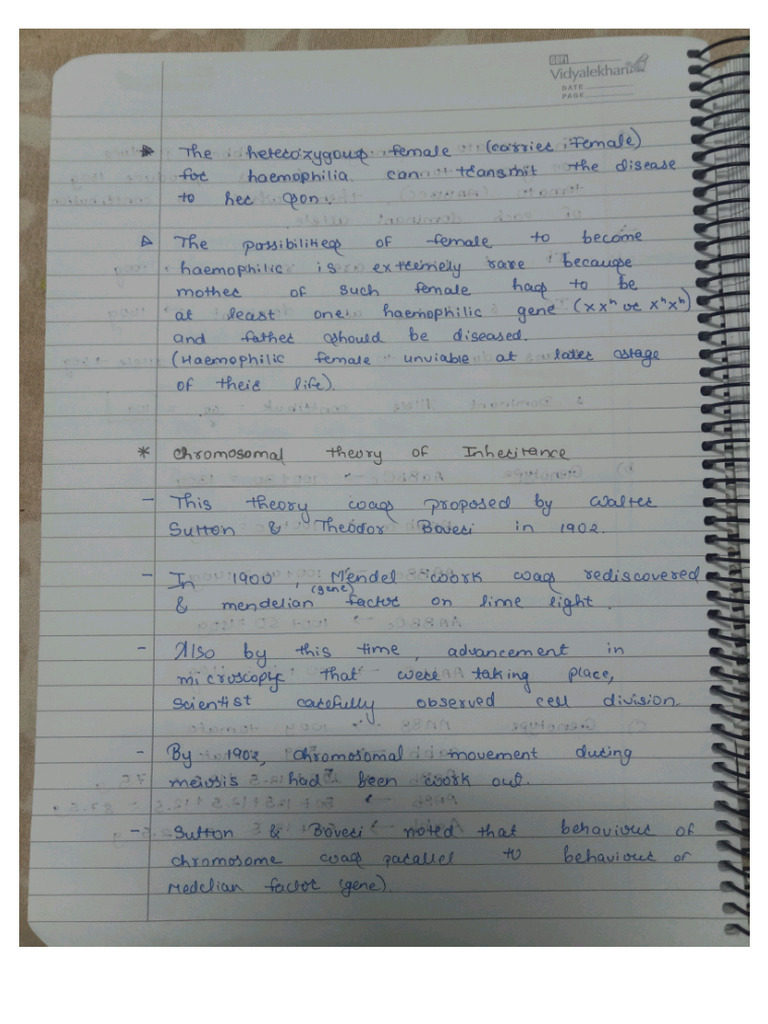 GOPI
Vidyalekhan
DATE
PAGE
The heterozygous female (carrier female)
for haemophilia can transmit the disease
to her son.
The possibilities of female to become
haemophilic is extremely rare because
mother of such female has to be
at least one haemophilic gene (XXʰ or XʰXʰ)
and father should be diseased.
(Haemophilic female unviable at later stage
of their life).
* Chromosomal theory of Inheritance
- This theory was proposed by Walter
Sutton & Theodor Boveri in 1902.
- In 1900, Mendel work was rediscovered
(gene)
& mendelian factor on lime light.
- Also by this time, advancement in
microscopic that were taking place,
scientist carefully observed cell division.
- By 1902, chromosomal movement during
meiosis had been work out.
- Sutton & Boveri noted that behaviour of
chromosome was parallel to behaviour of
Medelian factor (gene).